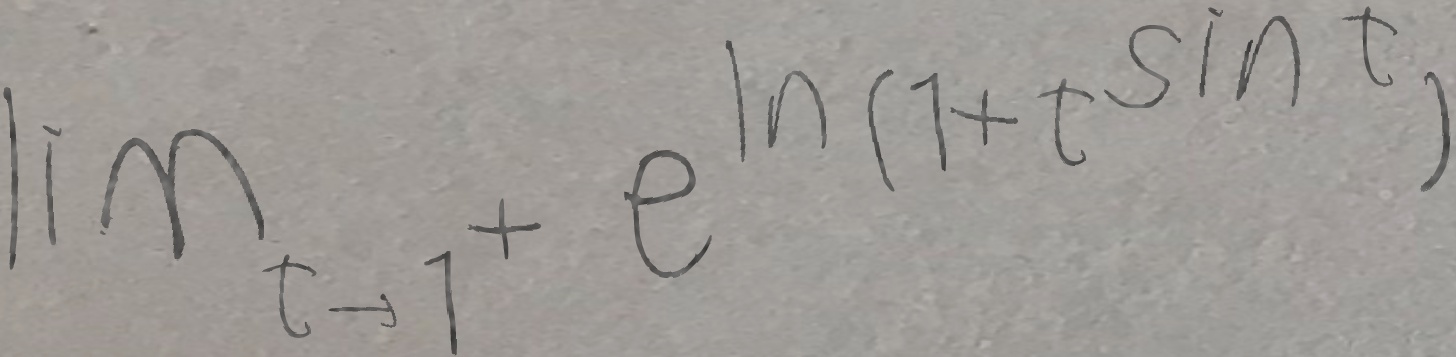 lim_{t→1^+} e^{ln(1+t^{sin t})}